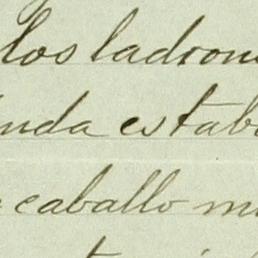 los ladron
nda estab
caballo m